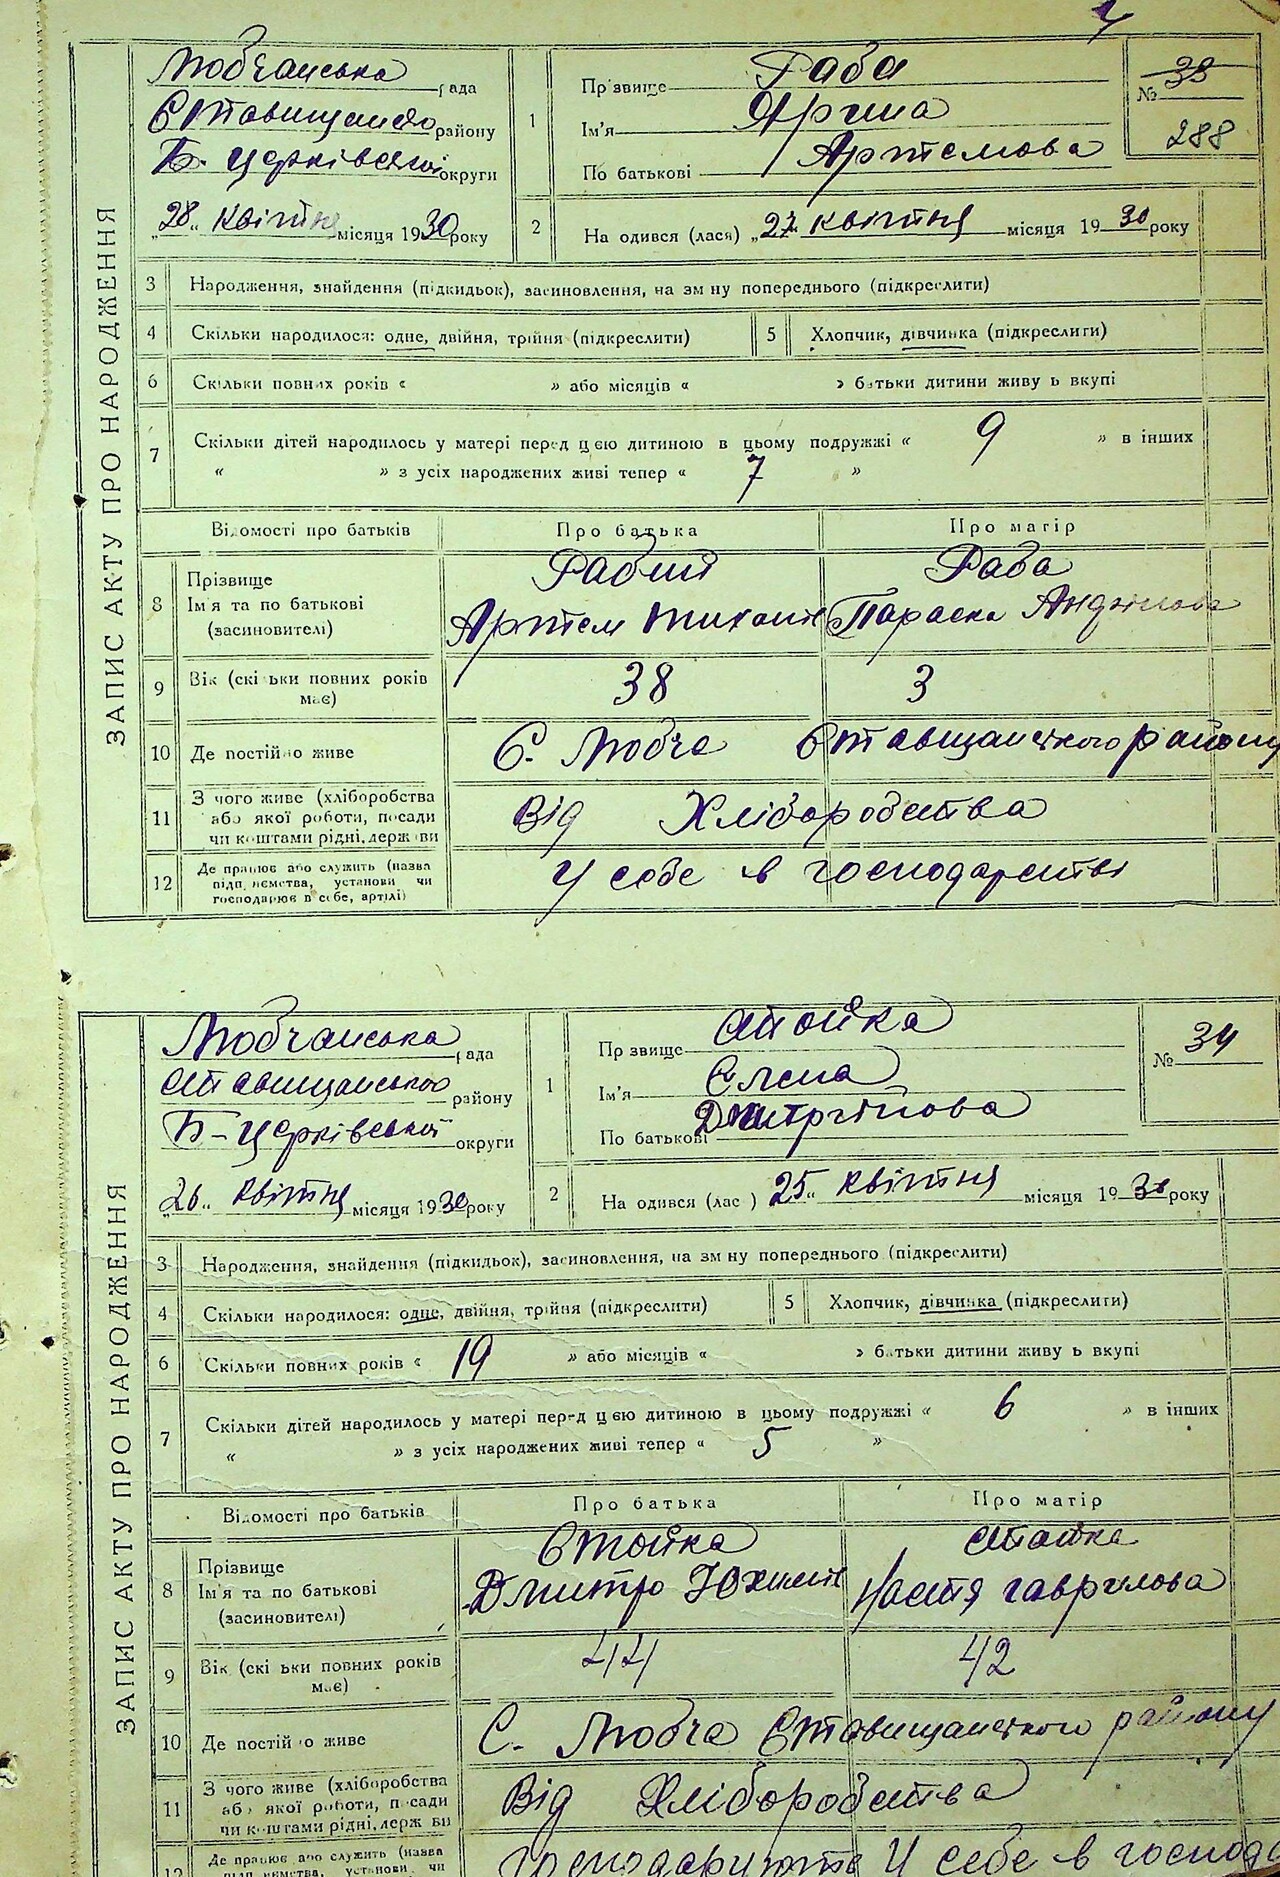 Любчанська рада
Ставищансько району
Б. Церківської округи
„28„ квітня місяця 1930 року
1
Прізвище Раба
Ім'я Ярина
По батькові Артемова
№ 33
288
2
На одився (лася) „27„ квітня місяця 1930 року
ЗАПИС АКТУ ПРО НАРОДЖЕННЯ
3 Народження, знайдення (підкидьок), засиновлення, на зм ну попереднього (підкреслити)
4 Скільки народилося: одне, двійня, трійня (підкреслити) 5 Хлопчик, дівчинка (підкреслити)
6 Скільки повних років « » або місяців « » батьки дитини живу ь вкупі
7 Скільки дітей народилось у матері перед цією дитиною в цьому подружжі « 9 » в інших
« » з усіх народжених живі тепер « 7 »
Відомості про батьків Про батька Про матір
8 Прізвище Рабий Раба
Ім'я та по батькові Артем Тихонів Параска
(засиновителі)
9 Вік (скі ьки повних років має) 38 3
10 Де постійно живе С. Любча Ставищанського району
11 З чого живе (хліборобства
або якої роботи, посади
чи коштами рідні, держ ви
Від Хліборобства
12 Де працює або служить (назва
підп иємства, установи чи
господарює в себе, артілі)
У себе в господарстві
Любчанська рада
Ставищансько району
Б-Церківської округи
„26„ квітня місяця 1930 року
1
Пр звище Стойка
Ім'я Єлена
По батькові Дмитрійова
№ 34
2
На одився (лас ) 25„ квітня місяця 1930 року
ЗАПИС АКТУ ПРО НАРОДЖЕННЯ
3 Народження, знайдення (підкидьок), засиновлення, на зм ну попереднього (підкреслити)
4 Скільки народилося: одне, двійня, трійня (підкреслити) 5 Хлопчик, дівчинка (підкреслити)
6 Скільки повних років « 19 » або місяців « » батьки дитини живу ь вкупі
7 Скільки дітей народилось у матері перед цією дитиною в цьому подружжі « 6 » в інших
« » з усіх народжених живі тепер « 5 »
Відомості про батьків Про батька Про матір
8 Прізвище Стойка Стойка
Ім'я та по батькові Дмитро Юхимів Настя Гаврилова
(засиновителі)
9 Вік (скі ьки повних років має) 44 42
10 Де постій о живе С. Любча Ставищанського району
11 З чого живе (хліборобства
або якої роботи, посади
чи коштами рідні, держ ви
Від Хліборобства
12 Де працює або служить (назва
підп иємства, установи чи
господарюють У себе в господа